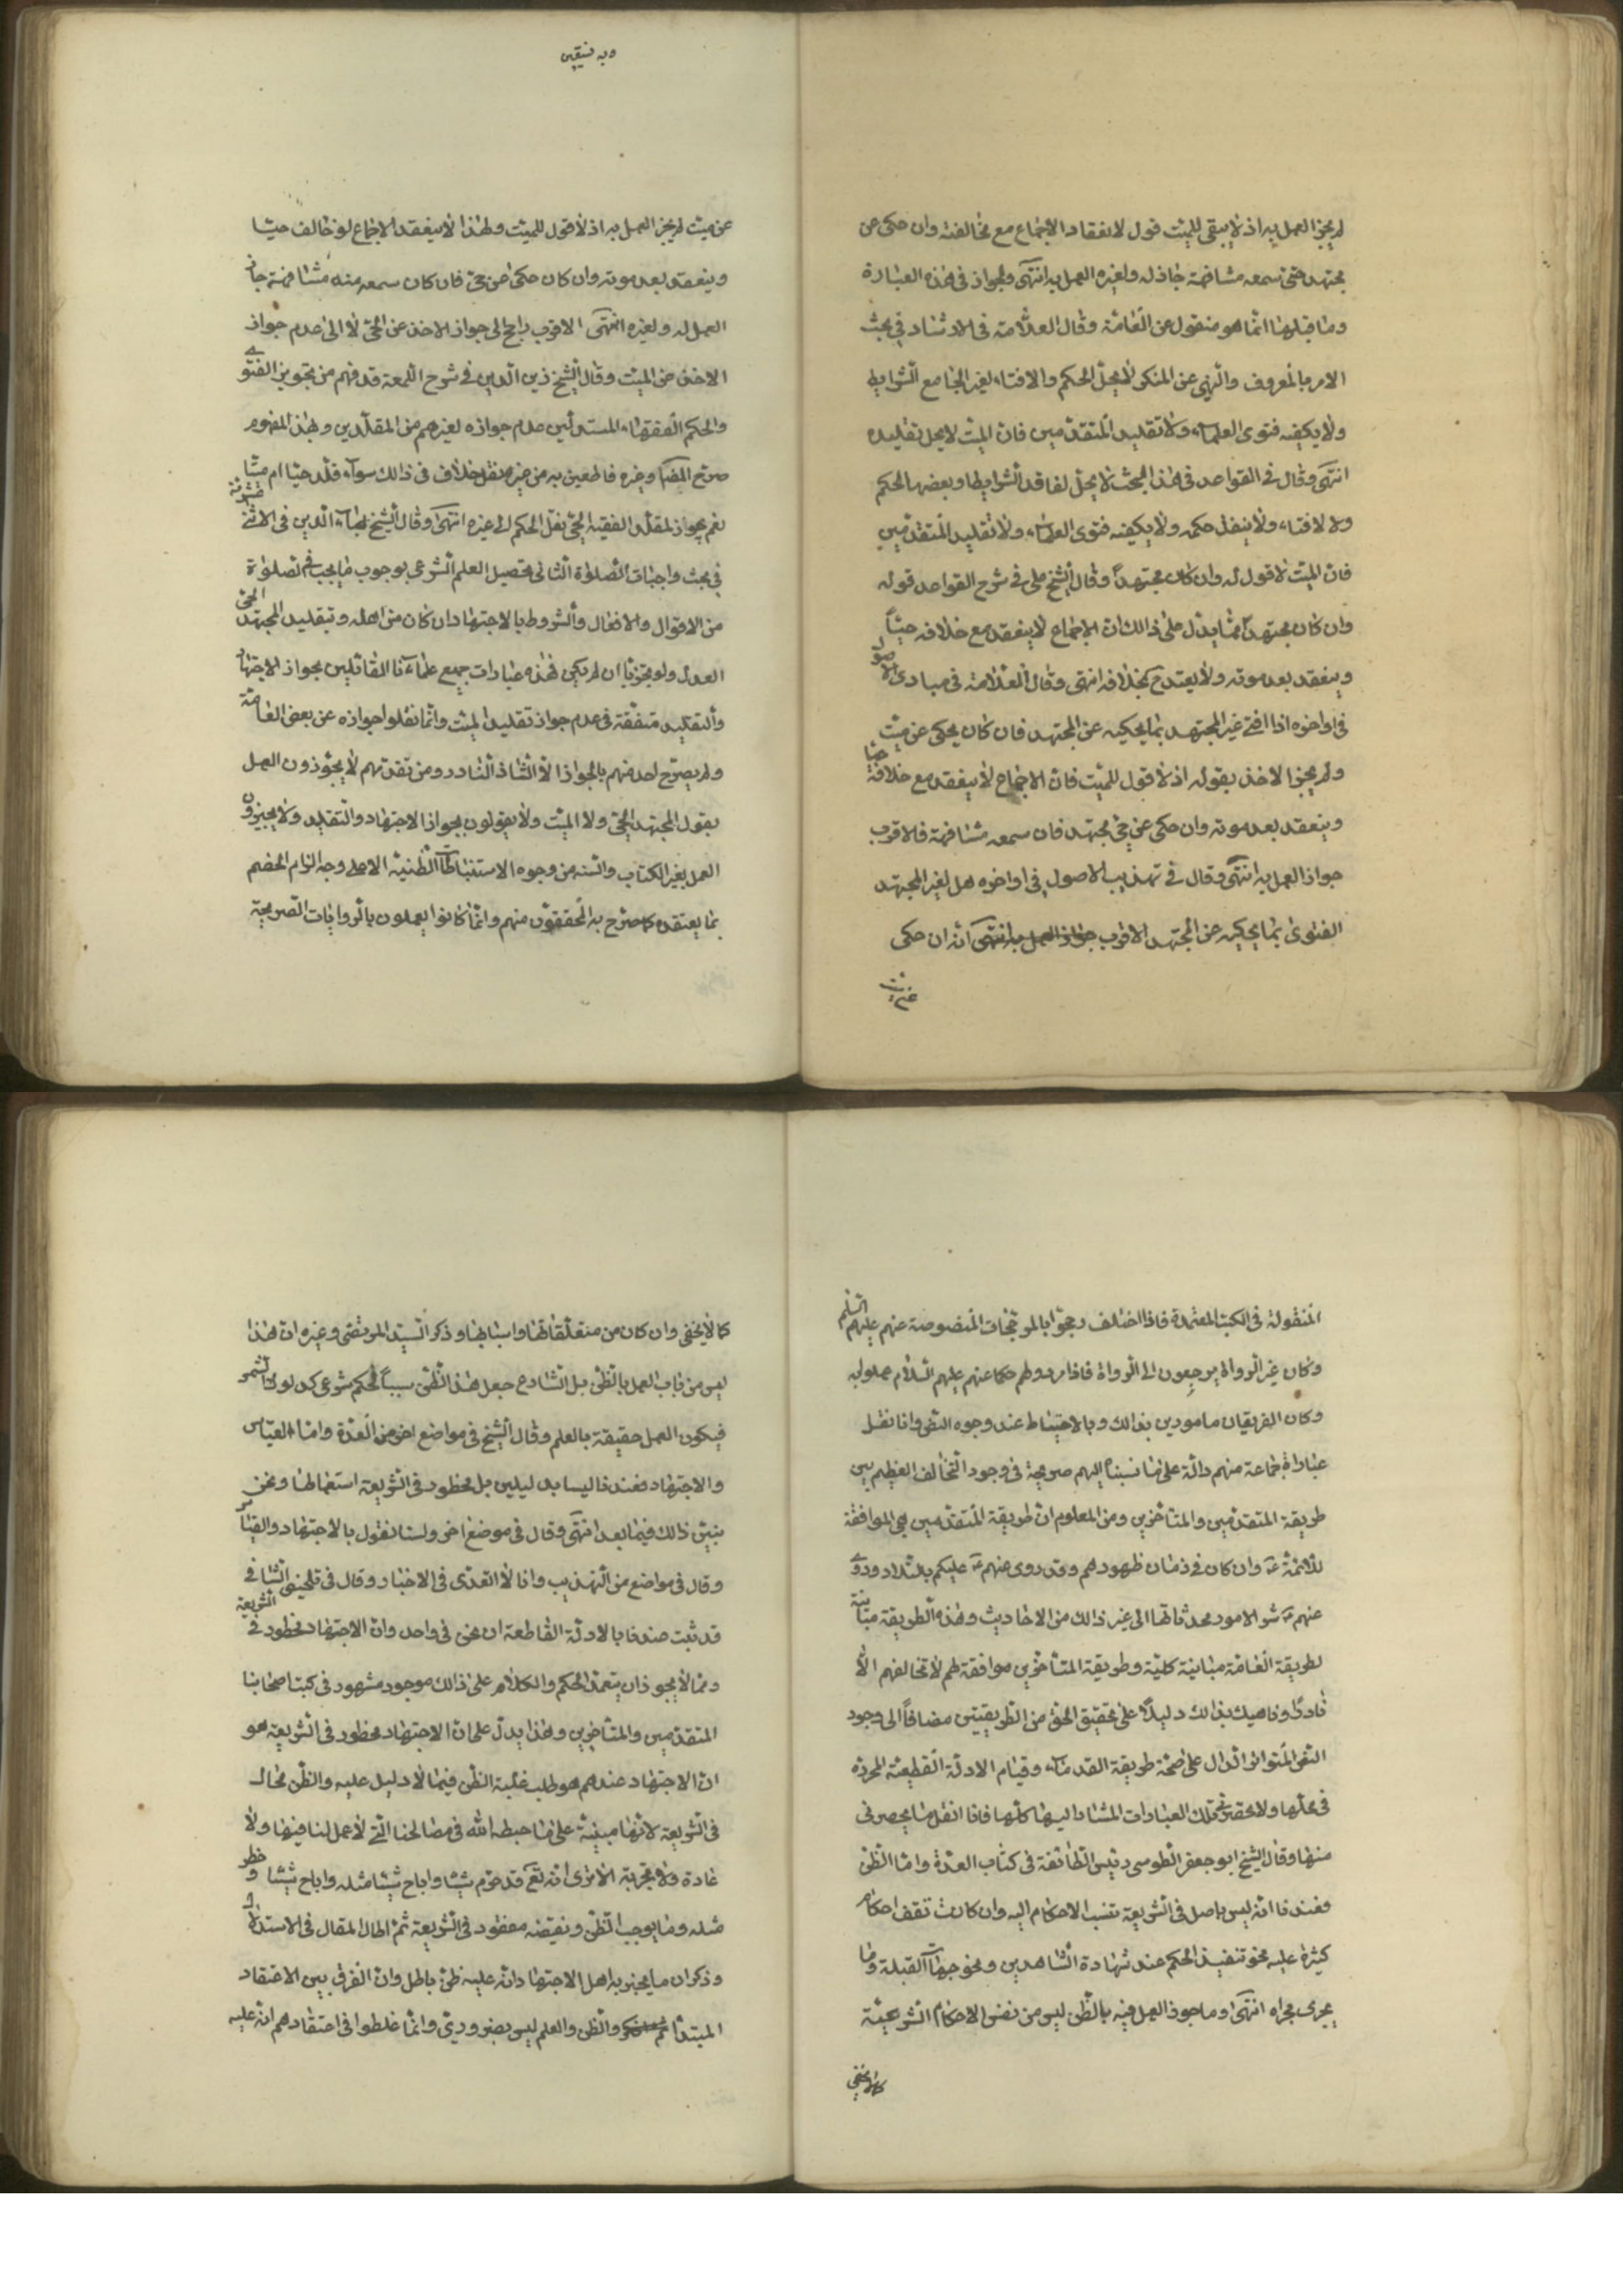 لم يجز العمل به اذ لا يبقى للميّت قول لانعقاد الاجماع مع مخالفته وان حكى عن
مجتهد حيّ سمعه مشافهة جاز له ولغيره العمل به انتهى والجواز في هذه العبارة
وما قبلها انّما هو منقول عن العامّة وقال العلّامة في الارشاد في بحث
الامر بالمعروف والنّهي عن المنكر لا يحلّ الحكم والافتاء لغير الجامع الشّرايط
ولا يكفيه فتوى العلماء ولا تقليد المتقدّمين فان الميّت لا يحل تقليده
انتهى وقال في القواعد في هذا البحث لا يحلّ لفاقد الشّرايط او بعضها الحكم
ولا الافتاء ولا ينفذ حكمه ولا يكفيه فتوى العلماء ولا تقليد المتقدّمين
فان الميّت لا قول له وان كان مجتهداً وقال الشّيخ علي في شرح القواعد قوله
وان كان مجتهداً ممّا يدلّ على ذالك ان الاجماع لا ينعقد مع خلافه حيّاً
وينعقد بعد موته ولا يعتدّ بخلافه انتهى وقال العلّامة في مبادى الاصول
في اواخره اذا افتى غير المجتهد بما يحكيه عن المجتهد فان كان يحكى عن ميّت
ولم يجز الاخذ بقوله اذ لا قول للميّت فانّ الاجماع لا ينعقد مع خلافه حيّا
وينعقد بعد موته وان حكى عن حيّ مجتهد فان سمعه مشافهة فالاقرب
جواز العمل به انتهى وقال في تهذيب الاصول في اواخره هل لغير المجتهد
الفتوى بما يحكيه عن المجتهد الاقرب جواز العمل به انتهى انّه ان حكى
عن ميّت
وبه نستعين
عن ميّت لم يجز العمل به اذ لا قول للميّت ولهذا لا ينعقد الاجماع لو خالف حيّا
وينعقد بعد موته وان كان حكى عن حيّ فان كان سمعه منه مشافهة جاز
العمل له ولغيره انتهى الاقرب راجع الى جواز الاخذ عن الحيّ لا الى عدم جواز
الاخذ عن الميّت وقال الشّيخ زين الدّين في شرح اللمعة قد فهم من تجويز الفتوى
والحكم الفقهاء المستدلّين عدم جوازه لغيرهم من المقلّدين وبهذا المفهوم
صرّح المصنّ وغيره قاطعين به من غير نقل خلاف في ذالك سواء قلّد حيّا ام ميّتا
نعم يجوز لمقلّد الفقيه الحيّ نقل الحكم الى غيره انتهى وقال الشّيخ بهاء الدّين في الاثنى عشريّة
في بحث واجبات الصّلوة الثّاني تحصيل العلم الشّرعى بوجوب ما يجب في الصّلوة
من الاقوال والافعال والشّروط بالاجتهاد ان كان من اهله وبتقليد المجتهد الحيّ
العدل ولو بتجزيا ان لم يكن فهذه عبارات جميع علمائنا القائلين بجواز الاجتهاد
والتقليد متّفقة في عدم جواز تقليد الميّت وانّما نقلوا جوازه عن بعض العامّة
ولم يصرّح احد منهم بالجواز الّا الشّاذ النّادر ومن تقدّمهم لا يجوّزون العمل
بقول المجتهد الحيّ ولا الميّت ولا يقولون بجواز الاجتهاد والتّقليد ولا يجيزون
العمل بغير الكتاب والسّنة من وجوه الاستنباطات الظنيّة الا على وجه الزام الخصم
بما يعتقده كما صرّح به المحققون منهم وانّما كانوا يعملون بالرّوايات الصّريحة
المنقولة في الكتب المعتمدة فاذا اختلف رجعوا بالمرجّحات المنصوصة عنهم عليهم السّلام
وكان غير الرواة يرجعون الى الرواة فاذا رووا لهم حكما عنهم عليهم السّلام عملوا به
وكان الفريقان مامورين بذالك وبالاحتياط عند وجوه النص وانا نقل
عبارات جماعة منهم دالّة على ما نسبناه اليهم صريحة في وجود التّخالف العظيم بين
طريقة المتقدّمين والمتأخّرين ومن المعلوم انّ طريقة المتقدّمين هي الموافقة
للائمّة ع وان كان في زمان ظهورهم وقد روى عنهم ع عليكم بالتّلاد وروى
عنهم ع شر الامور محدثاتها الى غير ذالك من الاحاديث وهذه الطّريقة مباينة
لطريقة العامّة مباينة كليّة وطريقة المتأخّرين موافقة لهم لا تخالفهم الّا
نادراً وناهيك بذالك دليلاً على تحقيق الحقّ من الطّريقتين مضافاً الى وجود
النّص المتواتر الدّال على صحّة طريقة القدماء وقيام الادلّة القطعيّة المحرّرة
في محلّها ولا يحضرني تلك العبارات المشار اليها كلّها فانا انقل ما يحضرنى
منها وقال الشّيخ ابو جعفر الطّوسى رئيس الطّائفة في كتاب العدّة وامّا الظّن
فعندنا انّه ليس باصل في الشّريعة تنسب الاحكام اليه وان كان تقف احكام
كثيرة عليه نحو تنفيذ الحكم عند شهادة الشّاهدين ونحو جهات القبلة وما
يجرى مجراه انتهى وما جوز العمل فيه بالظّن ليس من نفس الاحكام الشّرعيّة
كما لا يخفى
كما لا يخفى وان كان من متعلّقاتها واسبابها وذكر السّيّد المرتضى وغيره ان هذا
ليس من باب العمل بالظّن بل الشّارع جعل هذا الظّن سبباً لحكم شرعى كدلوك الشّمس
فيكون العمل حقيقة بالعلم وقال الشّيخ في مواضع اخر من العدّة وامّا القياس
والاجتهاد فعندنا ليسا بدليلين بل محظور في الشّريعة استعمالها ونحن
نبيّن ذالك فيما بعد انتهى وقال في موضع اخر ولسنا نقول بالاجتهاد والقياس
وقال في مواضع من التّهذيب وانا لا اتعدّى في الاخبار وقال في تلخيص الشّافى
قد ثبت عندنا بالادلّة القاطعة ان الحق في واحد وانّ الاجتهاد محظور في الشّريعة
وممّا لا يجوز ان يتعمّد الحكم والكلام على ذالك موجود مشهور في كتب اصحابنا
المتقدّمين والمتأخّرين وهذا يدلّ على ان الاجتهاد محظور في الشّريعة هو
ان الاجتهاد عندهم هو طلب غلبة الظّن فيما لا دليل عليه والظّن محال
في الشّريعة لانّها مبنيّة على ما حبطه الله في مصالحنا الّتي لا عمل لنا فيها ولا
عادة ولا تجربة الا ترى انه تع قد حرّم شيئا واباح شيئا مثله واباح شيئا وحظر
مثله وما يوجب الظّن ونقيضه مفقود في الشّريعة ثمّ اطال المقال في الاستدلال
وذكر ان ما يخبر به اهل الاجتهاد انّه عليه ظنّ باطل وانّ الفرق بين الاعتقاد
المبتدأ ثم والظّن والعلم ليس بضروريّ وانّما غلطوا في اعتقادهم انّه عليه